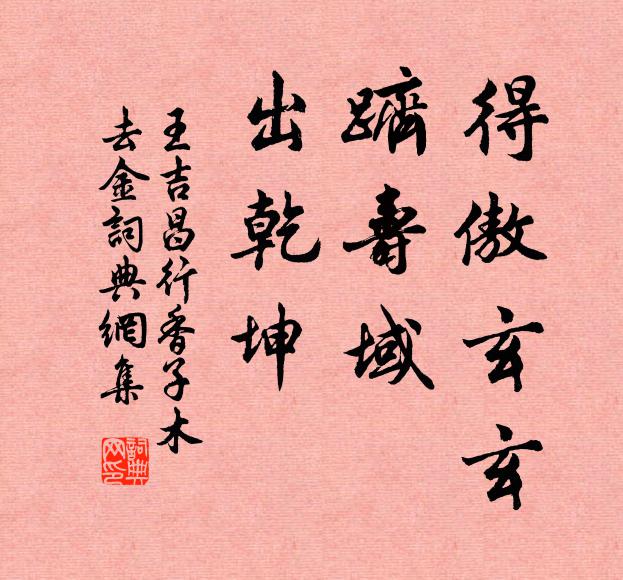 得傲玄玄
躋壽域
出乾坤
王吉昌行香子木
去金詞典網集
詞典網印